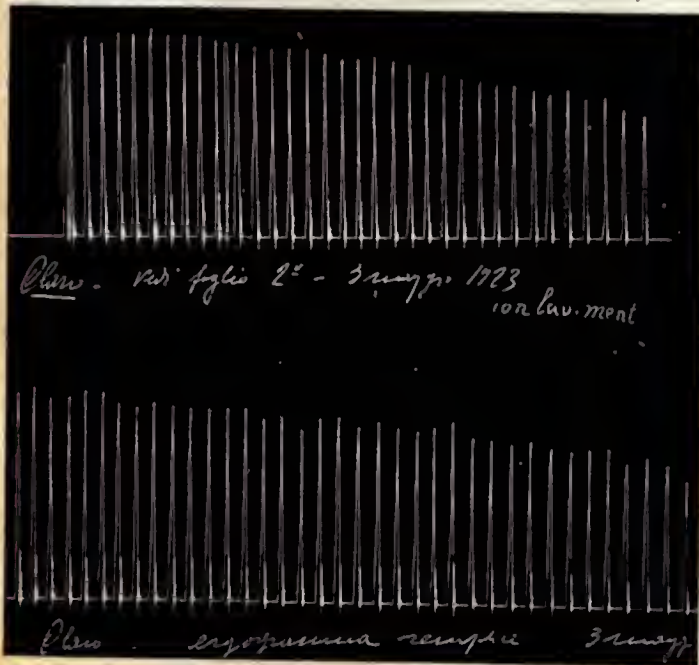 Olaro. Vedi foglio 2º - 3 maggio 1923
con lav. ment
Olaro. ergogramma semplice 3 magg